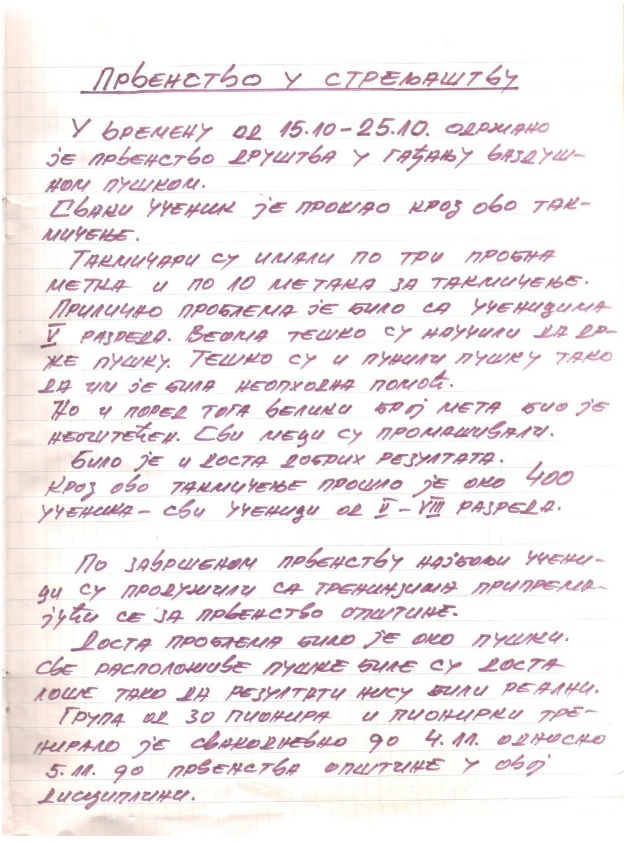 ПРВЕНСТВО У СТРЕЉАШТВУ
У ВРЕМЕНУ ОД 15.10-25.10. ОДРЖАНО
ЈЕ ПРВЕНСТВО ДРУШТВА У ГАЂАЊУ ВАЗДУШ-
НОМ ПУШКОМ.
СВАКИ УЧЕНИК ЈЕ ПРОШАО КРОЗ ОВО ТАК-
МИЧЕЊЕ.
ТАКМИЧАРИ СУ ИМАЛИ ПО ТРИ ПРОБНА
МЕТКА И ПО 10 МЕТАКА ЗА ТАКМИЧЕЊЕ.
ПРИЛИЧНО ПРОБЛЕМА ЈЕ БИЛО СА УЧЕНИЦИМА
V РАЗРЕДА. ВЕОМА ТЕШКО СУ НАУЧИЛИ ДА ДР-
ЖЕ ПУШКУ. ТЕШКО СУ И ПУНИЛИ ПУШКУ ТАКО
ДА ИМ ЈЕ БИЛА НЕОПХОДНА ПОМОЋ.
НО И ПОРЕД ТОГА ВЕЛИКИ БРОЈ МЕТА БИО ЈЕ
НЕОШТЕЋЕН. СВИ МЕЦИ СУ ПРОМАШИВАЛИ.
БИЛО ЈЕ И ДОСТА ДОБРИХ РЕЗУЛТАТА.
КРОЗ ОВО ТАКМИЧЕЊЕ ПРОШЛО ЈЕ ОКО 400
УЧЕНИКА - СВИ УЧЕНИЦИ ОД II - VIII РАЗРЕДА.
ПО ЗАВРШЕНОМ ПРВЕНСТВУ НАЈБОЉИ УЧЕНИ-
ЦИ СУ ПРОДУЖИЛИ СА ТРЕНИНЗИМА ПРИПРЕМА-
ЈУЋИ СЕ ЗА ПРВЕНСТВО ОПШТИНЕ.
ДОСТА ПРОБЛЕМА БИЛО ЈЕ ОКО ПУШКИ.
СВЕ РАСПОЛОЖИВЕ ПУШКЕ БИЛЕ СУ ДОСТА
ЛОШЕ ТАКО ДА РЕЗУЛТАТИ НИСУ БИЛИ РЕАЛНИ.
ГРУПА ОД 30 ПИОНИРА И ПИОНИРКИ ТРЕ-
НИРАЛО ЈЕ СВАКОДНЕВНО ДО 4.11. ОДНОСНО
5.11. ДО ПРВЕНСТВА ОПШТИНЕ У ОВОЈ
ДИСЦИПЛИНИ.